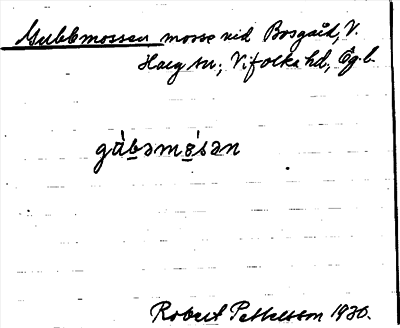 Gubbmossen mosse vid Bosgård, V.
Harg sn; Vifolka hd, Ög. b.
gùbəmósən
Robert Pettersson 1930.